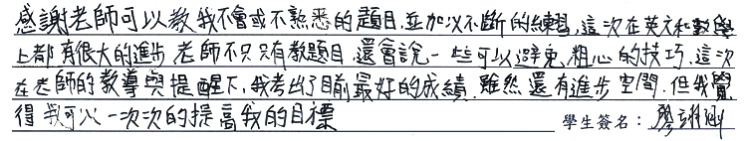 感謝老師可以教我不會或不熟悉的題目.並加以不斷的練習,這次在英文和數學
上都有很大的進步 老師不只只有教題目.還會說一些可以避免粗心的技巧.這次
在老師的教導與提醒下,我考出了目前最好的成績.雖然還有進步空間.但我覺
得我可以一次次的提高我的目標
學生簽名：廖